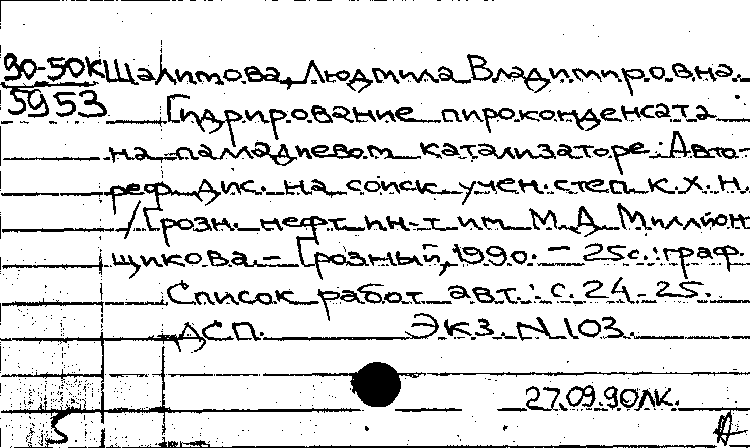 90-50К Шалимова, Людмила Владимировна.
5953 Гидрирование пироконденсата
на палладиевом катализаторе: Авто-
реф. дис. на соиск. учен. степ. к.х.н.
/Грозн. нефт. ин-т им. М.Д. Миллион
щикова. - Грозный, 1990. - 25с.: граф.
Список работ авт.: с. 24-25.
ДСП. Экз. N 103.
27.09.90ЛК.
5